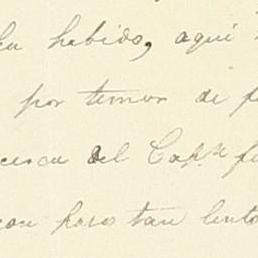 ha habido, aquí
por temor de
cerca del Cap.n
con paso tan lento